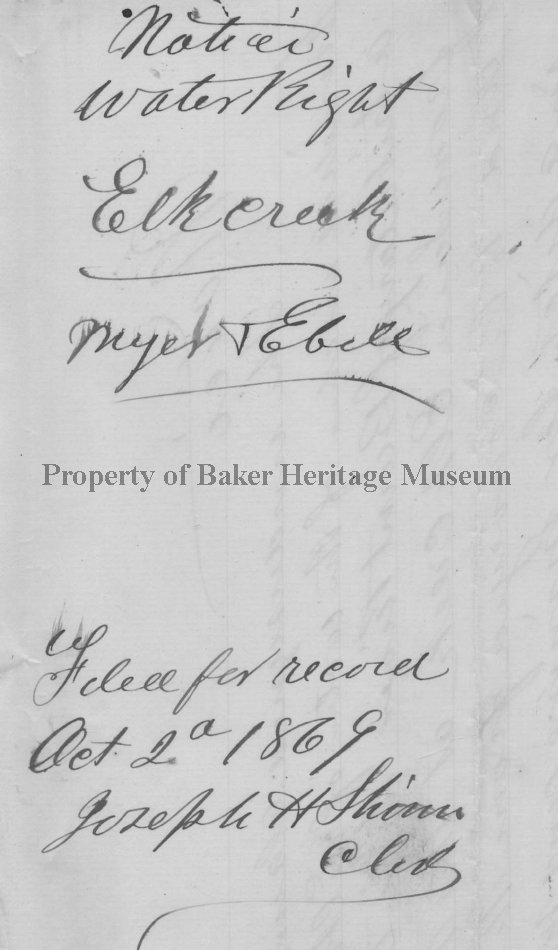 Notice
Water Right
Elk creek
Myer & Ebell
Property of Baker Heritage Museum
Filed for record
Oct 2d 1869
Joseph H Shinn
Clerk